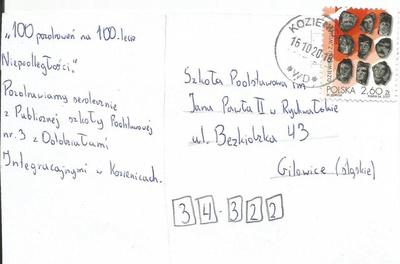 „100 pozdrowień na 100-lecie
Niepodległości."
Pozdrawiamy serdecznie
z Publicznej szkoły Podstawowej
nr. 3 z Oddziałami
Integracyjnymi w Kozienicach.
KOZIENI
16.10.20.18
*WD*
POLSKA 2,60 zł
Szkoła Podstawowa im
Jana Pawła II w Rychwałdzie
ul. Beskidzka 43
Gilowice (śląskie)
34-322